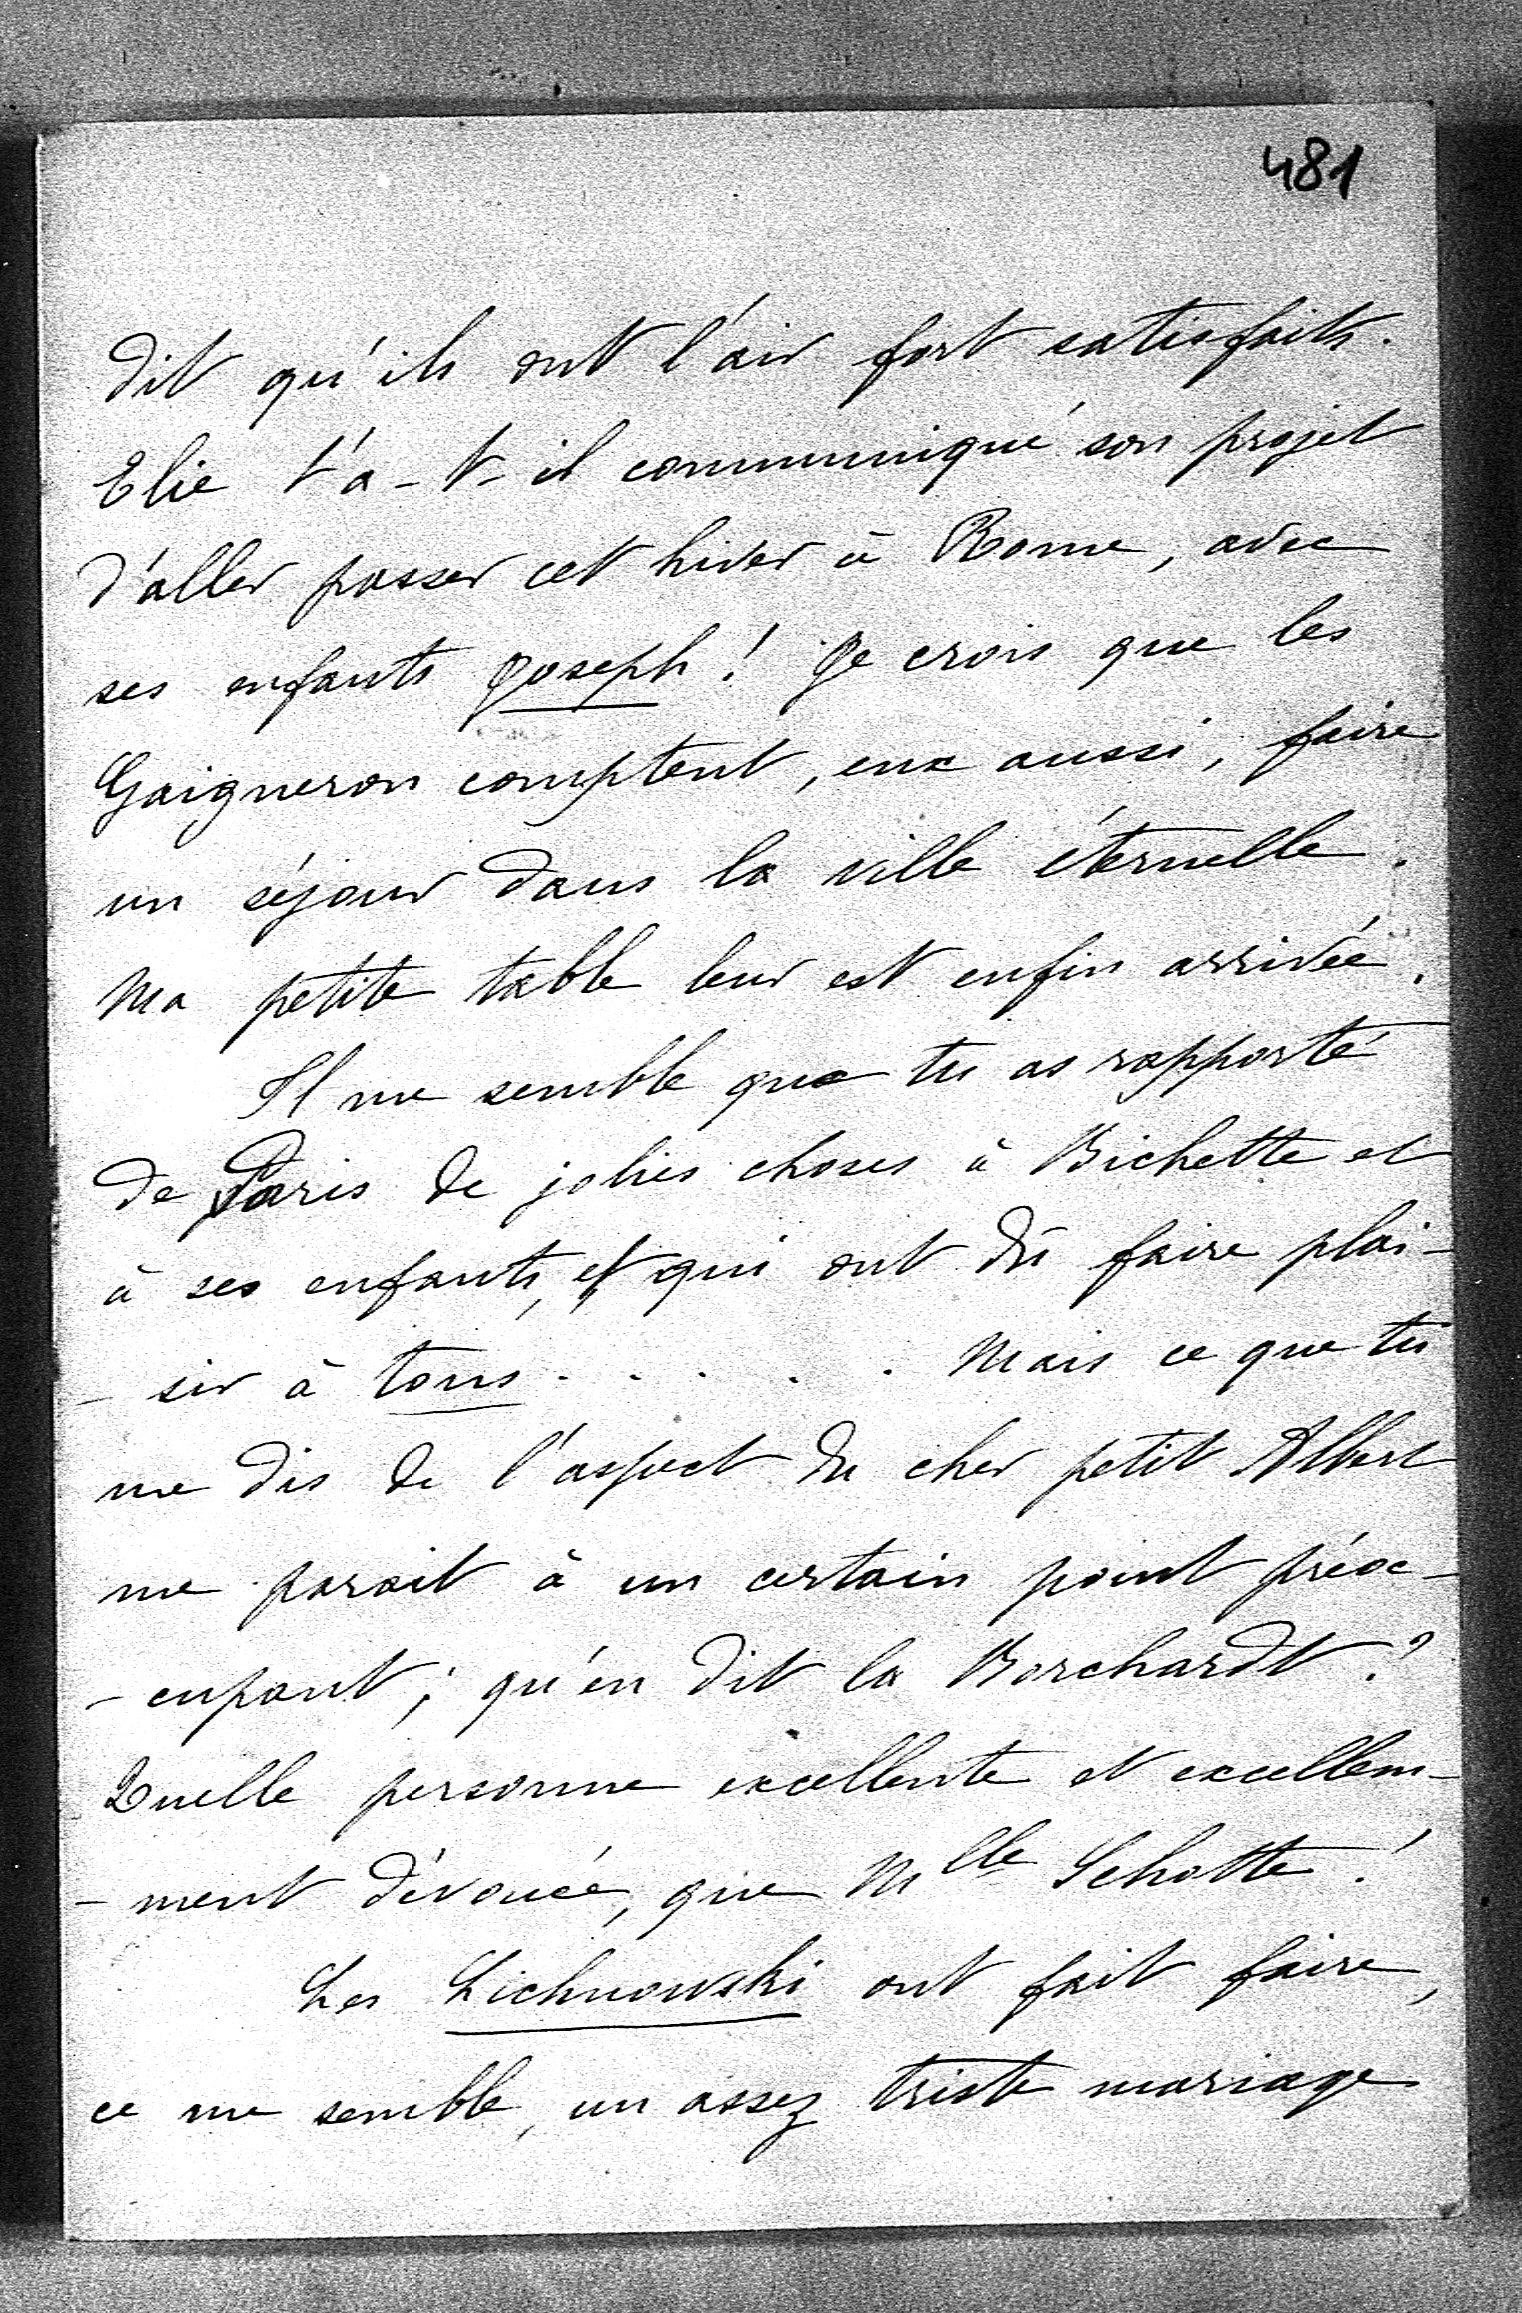 481
dit qu'ils ont l'air fort satisfaits.
Elie t'a-t-il communiqué son projet
d'aller passer cet hiver à Rome, avec
ses enfants Joseph! Je crois que les
Gaigneron comptent, eux aussi, faire
un séjour dans la ville éternelle.
Ma petite table leur est enfin arrivée.
Il me semble que tu as rapporté
de Paris de jolies choses à Bichette et
à ses enfants, et qui ont dû faire plai-
- sir à tous . . . . . Mais ce que tu
me dis de l'aspect du cher petit Albert
me parait à un certain point préoc-
- cupant; qu'en dit la Borchardt?
Quelle personne excellente et excellem-
- ment dévouée, que Mlle Schotte!
Les Lichnowski ont fait faire,
ce me semble, un assez triste mariage